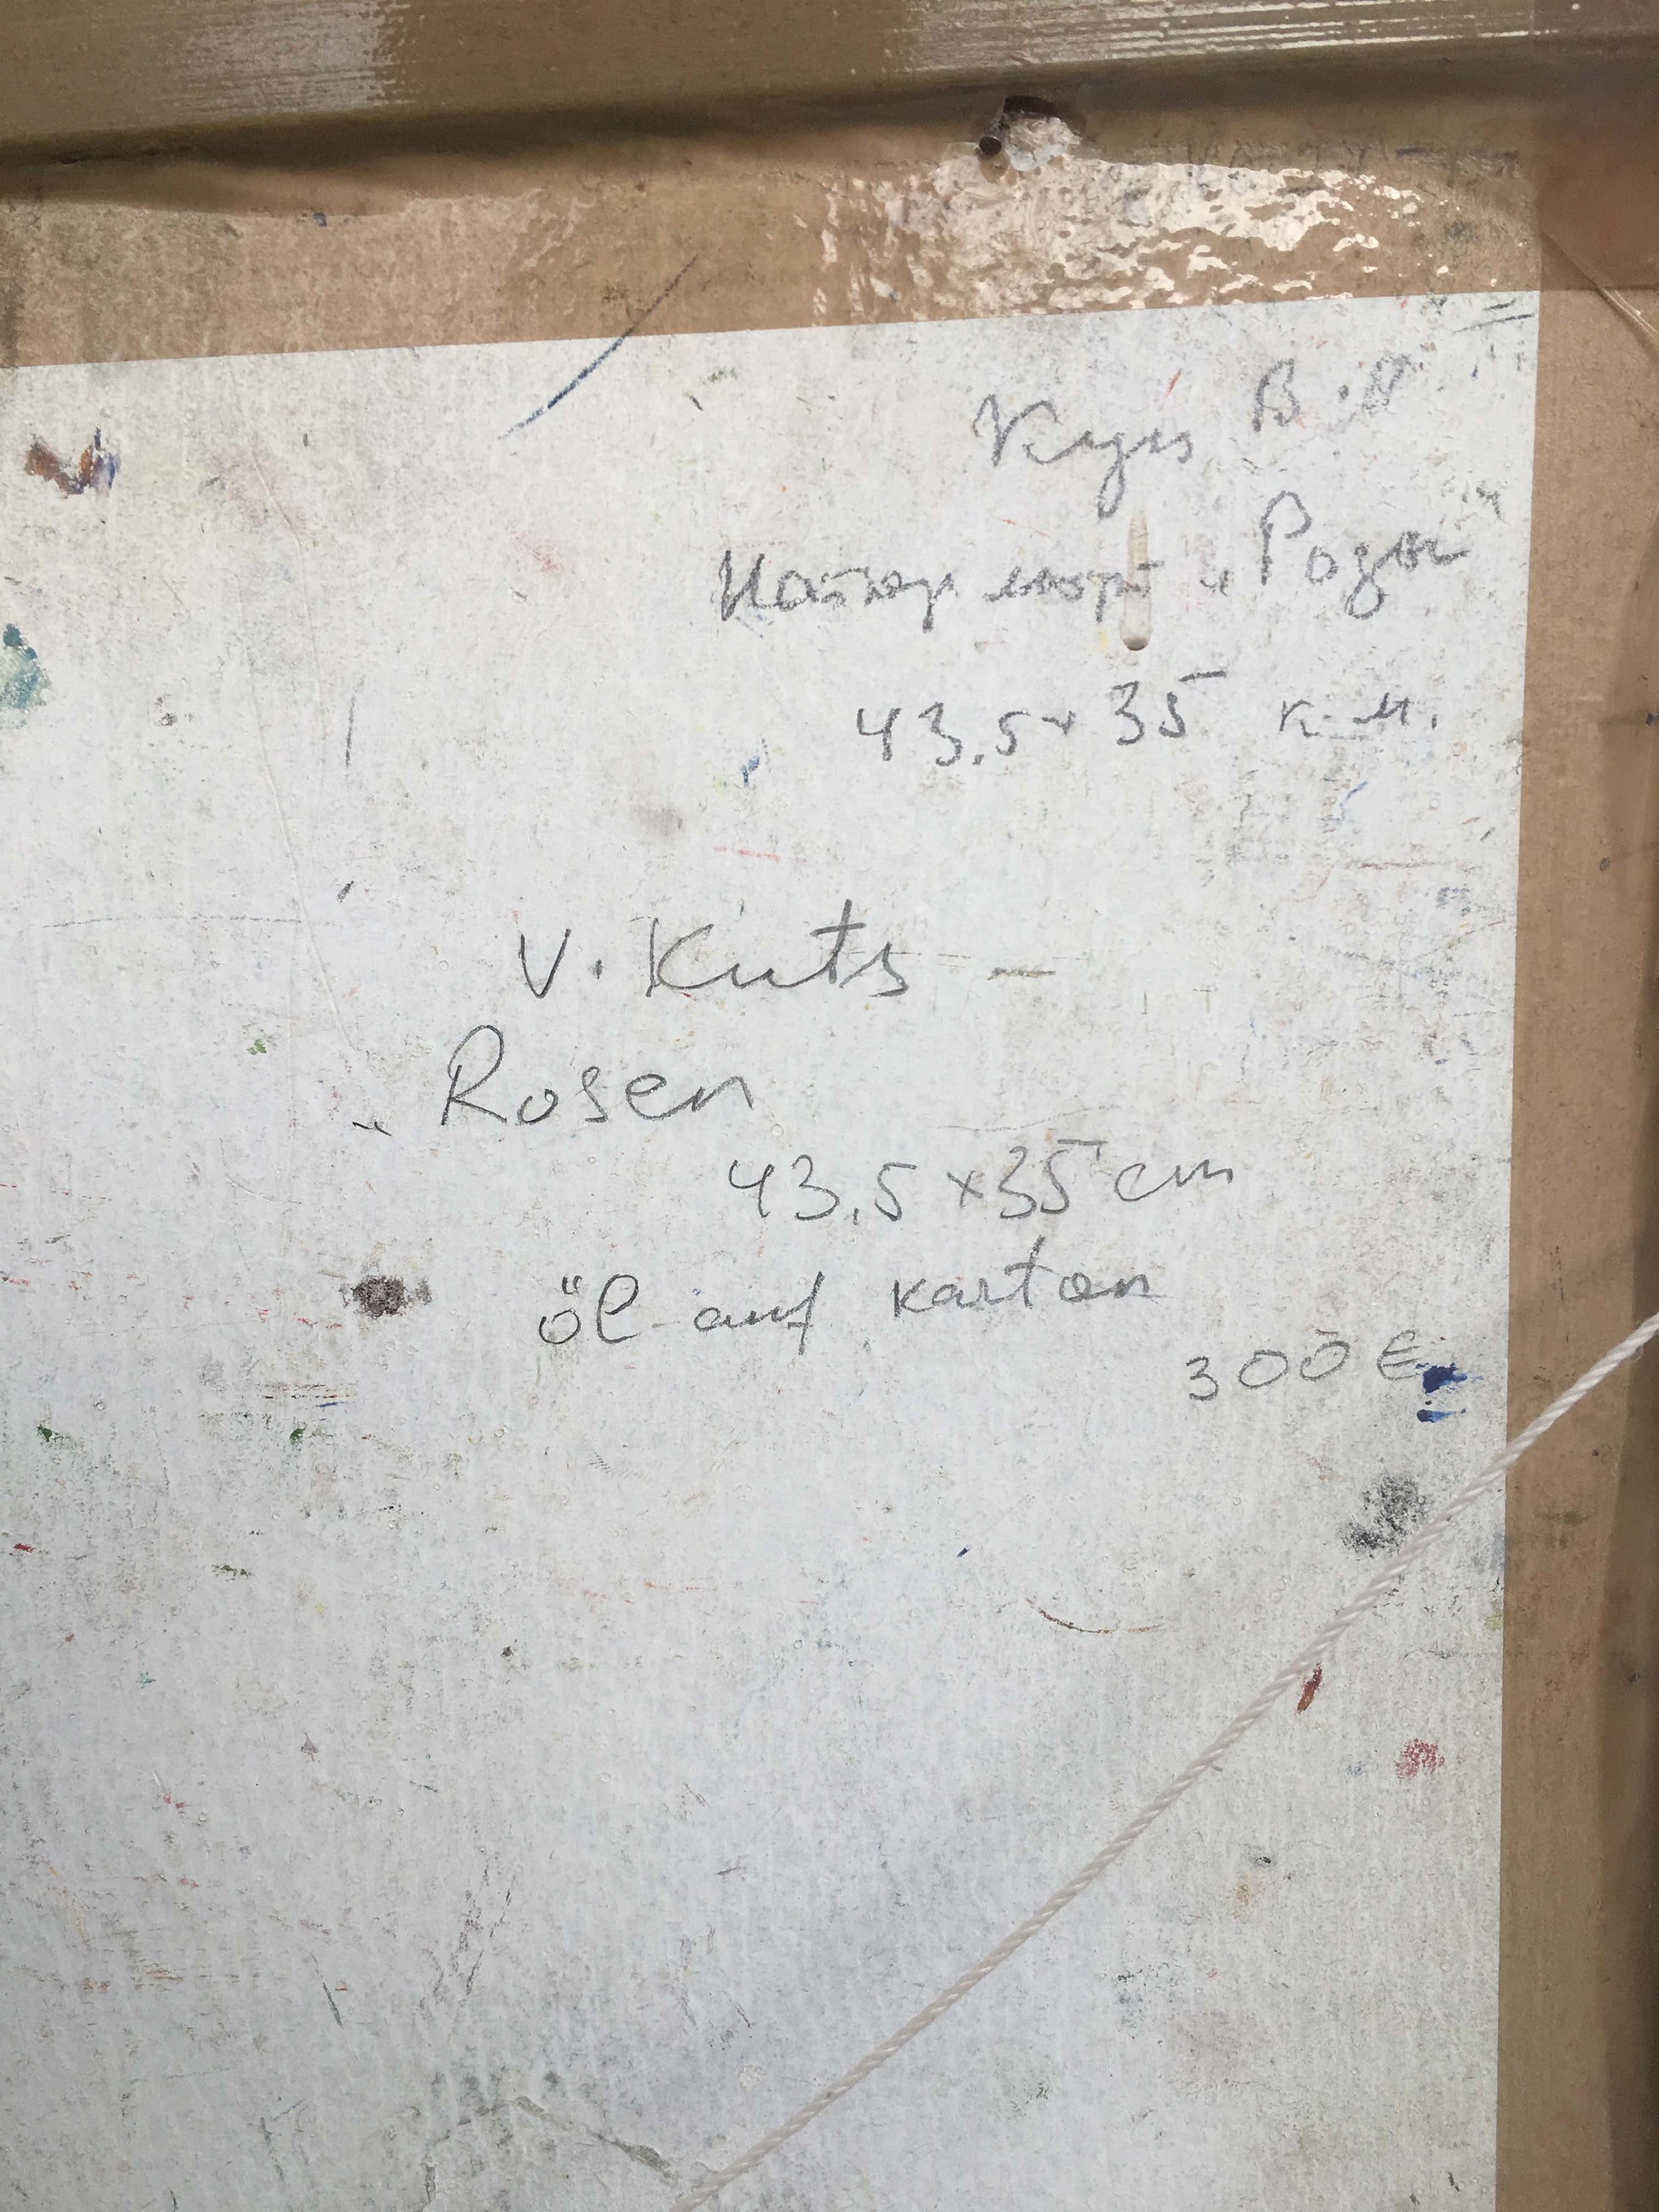 Куц В.И
Натюрморт „Розы
43,5 × 35 к.м.
V. Kuts –
„Rosen
43,5 × 35 cm
öl auf karton
300 €